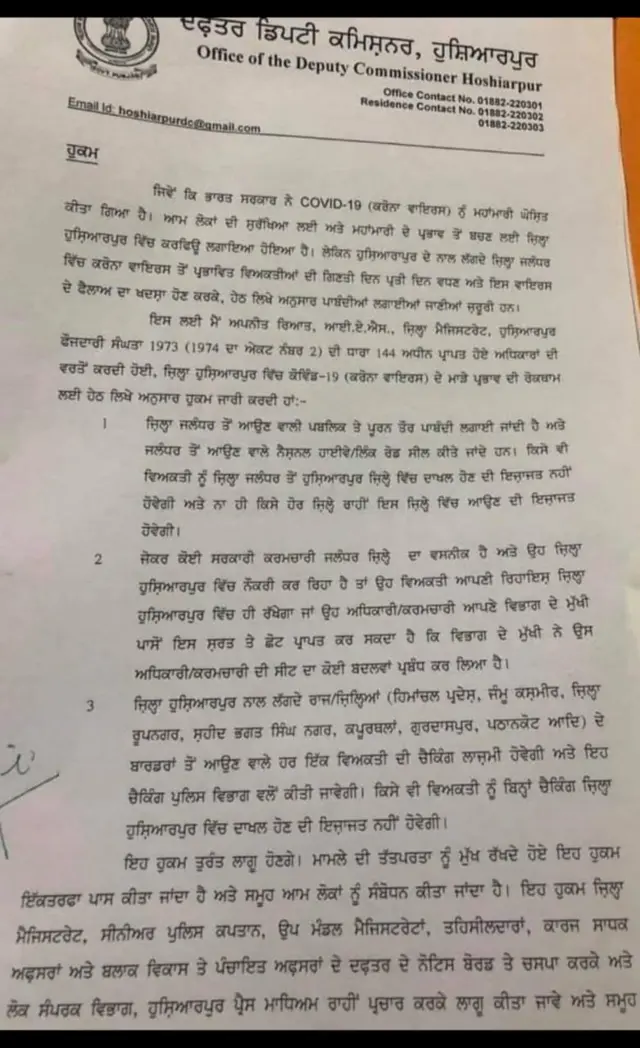 ਦਫ਼ਤਰ ਡਿਪਟੀ ਕਮਿਸ਼ਨਰ, ਹੁਸ਼ਿਆਰਪੁਰ
Office of the Deputy Commissioner Hoshiarpur
Office Contact No. 01882-220301
Residence Contact No. 01882-220302
01882-220303
Email Id: hoshiarpurdc@gmail.com
ਹੁਕਮ
ਜਿਵੇਂ ਕਿ ਭਾਰਤ ਸਰਕਾਰ ਨੇ COVID-19 (ਕਰੋਨਾ ਵਾਇਰਸ) ਨੂੰ ਮਹਾਂਮਾਰੀ ਘੋਸ਼ਿਤ
ਕੀਤਾ ਗਿਆ ਹੈ। ਆਮ ਲੋਕਾਂ ਦੀ ਸੁਰੱਖਿਆ ਲਈ ਅਤੇ ਮਹਾਂਮਾਰੀ ਦੇ ਪ੍ਰਭਾਵ ਤੋਂ ਬਚਣ ਲਈ ਜ਼ਿਲ੍ਹਾ
ਹੁਸ਼ਿਆਰਪੁਰ ਵਿੱਚ ਕਰਫਿਊ ਲਗਾਇਆ ਹੋਇਆ ਹੈ। ਲੇਕਿਨ ਹੁਸ਼ਿਆਰਾਪੁਰ ਦੇ ਨਾਲ ਲੱਗਦੇ ਜ਼ਿਲ੍ਹਾ ਜਲੰਧਰ
ਵਿੱਚ ਕਰੋਨਾ ਵਾਇਰਸ ਤੋਂ ਪ੍ਰਭਾਵਿਤ ਵਿਅਕਤੀਆਂ ਦੀ ਗਿਣਤੀ ਦਿਨ ਪ੍ਰਤੀ ਦਿਨ ਵਧਣ ਅਤੇ ਇਸ ਵਾਇਰਸ
ਦੇ ਫੈਲਾਅ ਦਾ ਖਦਸ਼ਾ ਹੋਣ ਕਰਕੇ, ਹੇਠ ਲਿਖੇ ਅਨੁਸਾਰ ਪਾਬੰਦੀਆਂ ਲਗਾਈਆਂ ਜਾਣੀਆਂ ਜ਼ਰੂਰੀ ਹਨ।
ਇਸ ਲਈ ਮੈਂ ਅਪਨੀਤ ਰਿਆਤ, ਆਈ.ਏ.ਐਸ., ਜ਼ਿਲ੍ਹਾ ਮੈਜਿਸਟਰੇਟ, ਹੁਸ਼ਿਆਰਪੁਰ
ਫੌਜਦਾਰੀ ਸੰਘਤਾ 1973 (1974 ਦਾ ਐਕਟ ਨੰਬਰ 2) ਦੀ ਧਾਰਾ 144 ਅਧੀਨ ਪ੍ਰਾਪਤ ਹੋਏ ਅਧਿਕਾਰਾਂ ਦੀ
ਵਰਤੋਂ ਕਰਦੀ ਹੋਈ, ਜ਼ਿਲ੍ਹਾ ਹੁਸ਼ਿਆਰਪੁਰ ਵਿੱਚ ਕੋਵਿੰਡ-19 (ਕਰੋਨਾ ਵਾਇਰਸ) ਦੇ ਮਾੜੇ ਪ੍ਰਭਾਵ ਦੀ ਰੋਕਥਾਮ
ਲਈ ਹੇਠ ਲਿਖੇ ਅਨੁਸਾਰ ਹੁਕਮ ਜਾਰੀ ਕਰਦੀ ਹਾਂ:-
1 ਜ਼ਿਲ੍ਹਾ ਜਲੰਧਰ ਤੋਂ ਆਉਣ ਵਾਲੀ ਪਬਲਿਕ ਤੇ ਪੂਰਨ ਤੌਰ ਪਾਬੰਦੀ ਲਗਾਈ ਜਾਂਦੀ ਹੈ ਅਤੇ
ਜਲੰਧਰ ਤੋਂ ਆਉਣ ਵਾਲੇ ਨੈਸ਼ਨਲ ਹਾਈਵੇ/ਲਿੰਕ ਰੋਡ ਸੀਲ ਕੀਤੇ ਜਾਂਦੇ ਹਨ। ਕਿਸੇ ਵੀ
ਵਿਅਕਤੀ ਨੂੰ ਜ਼ਿਲ੍ਹਾ ਜਲੰਧਰ ਤੋਂ ਹੁਸ਼ਿਆਰਪੁਰ ਜ਼ਿਲ੍ਹੇ ਵਿੱਚ ਦਾਖਲ ਹੋਣ ਦੀ ਇਜ਼ਾਜਤ ਨਹੀਂ
ਹੋਵੇਗੀ ਅਤੇ ਨਾ ਹੀ ਕਿਸੇ ਹੋਰ ਜ਼ਿਲ੍ਹੇ ਰਾਹੀਂ ਇਸ ਜ਼ਿਲ੍ਹੇ ਵਿੱਚ ਆਉਣ ਦੀ ਇਜ਼ਾਜਤ
ਹੋਵੇਗੀ।
2 ਜੇਕਰ ਕੋਈ ਸਰਕਾਰੀ ਕਰਮਚਾਰੀ ਜਲੰਧਰ ਜ਼ਿਲ੍ਹੇ ਦਾ ਵਸਨੀਕ ਹੈ ਅਤੇ ਉਹ ਜ਼ਿਲ੍ਹਾ
ਹੁਸ਼ਿਆਰਪੁਰ ਵਿੱਚ ਨੌਕਰੀ ਕਰ ਰਿਹਾ ਹੈ ਤਾਂ ਉਹ ਵਿਅਕਤੀ ਆਪਣੀ ਰਿਹਾਇਸ਼ ਜ਼ਿਲ੍ਹਾ
ਹੁਸ਼ਿਆਰਪੁਰ ਵਿੱਚ ਹੀ ਰੱਖੇਗਾ ਜਾਂ ਉਹ ਅਧਿਕਾਰੀ/ਕਰਮਚਾਰੀ ਆਪਣੇ ਵਿਭਾਗ ਦੇ ਮੁੱਖੀ
ਪਾਸੋਂ ਇਸ ਸ਼ਰਤ ਤੇ ਛੋਟ ਪ੍ਰਾਪਤ ਕਰ ਸਕਦਾ ਹੈ ਕਿ ਵਿਭਾਗ ਦੇ ਮੁੱਖੀ ਨੇ ਉਸ
ਅਧਿਕਾਰੀ/ਕਰਮਚਾਰੀ ਦੀ ਸੀਟ ਦਾ ਕੋਈ ਬਦਲਵਾਂ ਪ੍ਰਬੰਧ ਕਰ ਲਿਆ ਹੈ।
3 ਜ਼ਿਲ੍ਹਾ ਹੁਸ਼ਿਆਰਪੁਰ ਨਾਲ ਲੱਗਦੇ ਰਾਜ/ਜ਼ਿਲ੍ਹਿਆਂ (ਹਿਮਾਂਚਲ ਪ੍ਰਦੇਸ਼, ਜੰਮੂ ਕਸ਼ਮੀਰ, ਜ਼ਿਲ੍ਹਾ
ਰੂਪਨਗਰ, ਸ਼ਹੀਦ ਭਗਤ ਸਿੰਘ ਨਗਰ, ਕਪੂਰਥਲਾਂ, ਗੁਰਦਾਸਪੁਰ, ਪਠਾਨਕੋਟ ਆਦਿ) ਦੇ
ਬਾਰਡਰਾਂ ਤੋਂ ਆਉਣ ਵਾਲੇ ਹਰ ਇੱਕ ਵਿਅਕਤੀ ਦੀ ਚੈਕਿੰਗ ਲਾਜ਼ਮੀ ਹੋਵੇਗੀ ਅਤੇ ਇਹ
ਚੈਕਿੰਗ ਪੁਲਿਸ ਵਿਭਾਗ ਵਲੋਂ ਕੀਤੀ ਜਾਵੇਗੀ। ਕਿਸੇ ਵੀ ਵਿਅਕਤੀ ਨੂੰ ਬਿਨ੍ਹਾਂ ਚੈਕਿੰਗ ਜ਼ਿਲ੍ਹਾ
ਹੁਸ਼ਿਆਰਪੁਰ ਵਿੱਚ ਦਾਖਲ ਹੋਣ ਦੀ ਇਜਾਜਤ ਨਹੀਂ ਹੋਵੇਗੀ।
ਇਹ ਹੁਕਮ ਤੁਰੰਤ ਲਾਗੂ ਹੋਣਗੇ। ਮਾਮਲੇ ਦੀ ਤੱਤਪਰਤਾ ਨੂੰ ਮੁੱਖ ਰੱਖਦੇ ਹੋਏ ਇਹ ਹੁਕਮ
ਇੱਕਤਰਫਾ ਪਾਸ ਕੀਤਾ ਜਾਂਦਾ ਹੈ ਅਤੇ ਸਮੂਹ ਆਮ ਲੋਕਾਂ ਨੂੰ ਸੰਬੋਧਨ ਕੀਤਾ ਜਾਂਦਾ ਹੈ। ਇਹ ਹੁਕਮ ਜ਼ਿਲ੍ਹਾ
ਮੈਜਿਸਟਰੇਟ, ਸੀਨੀਅਰ ਪੁਲਿਸ ਕਪਤਾਨ, ਉਪ ਮੰਡਲ ਮੈਜਿਸਟਰੇਟਾਂ, ਤਹਿਸੀਲਦਾਰਾਂ, ਕਾਰਜ ਸਾਧਕ
ਅਫ਼ਸਰਾਂ ਅਤੇ ਬਲਾਕ ਵਿਕਾਸ ਤੇ ਪੰਚਾਇਤ ਅਫ਼ਸਰਾਂ ਦੇ ਦਫ਼ਤਰ ਦੇ ਨੋਟਿਸ ਬੋਰਡ ਤੇ ਚਸਪਾ ਕਰਕੇ ਅਤੇ
ਲੋਕ ਸੰਪਰਕ ਵਿਭਾਗ, ਹੁਸ਼ਿਆਰਪੁਰ ਪ੍ਰੈਸ ਮਾਧਿਅਮ ਰਾਹੀਂ ਪ੍ਰਚਾਰ ਕਰਕੇ ਲਾਗੂ ਕੀਤਾ ਜਾਵੇ ਅਤੇ ਸਮੂਹ